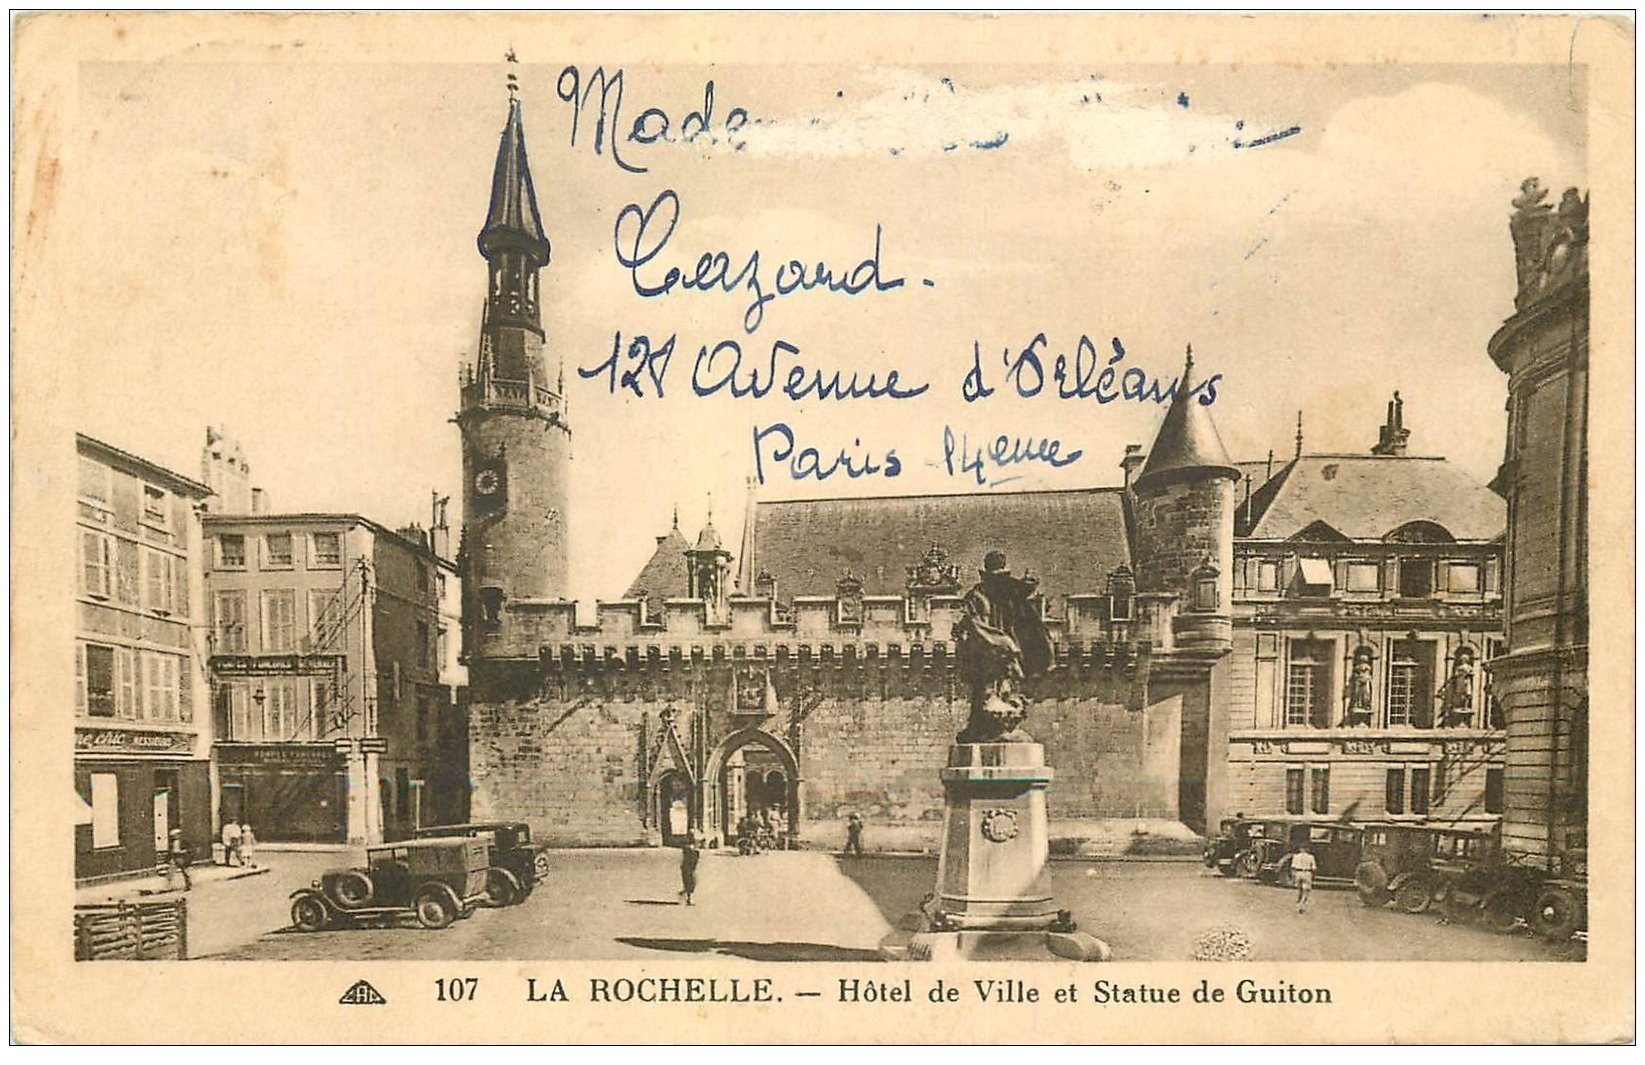 Made
Cazard.
Avenue d'Orléans
Paris 14eme
107 LA ROCHELLE. — Hôtel de Ville et Statue de Guiton